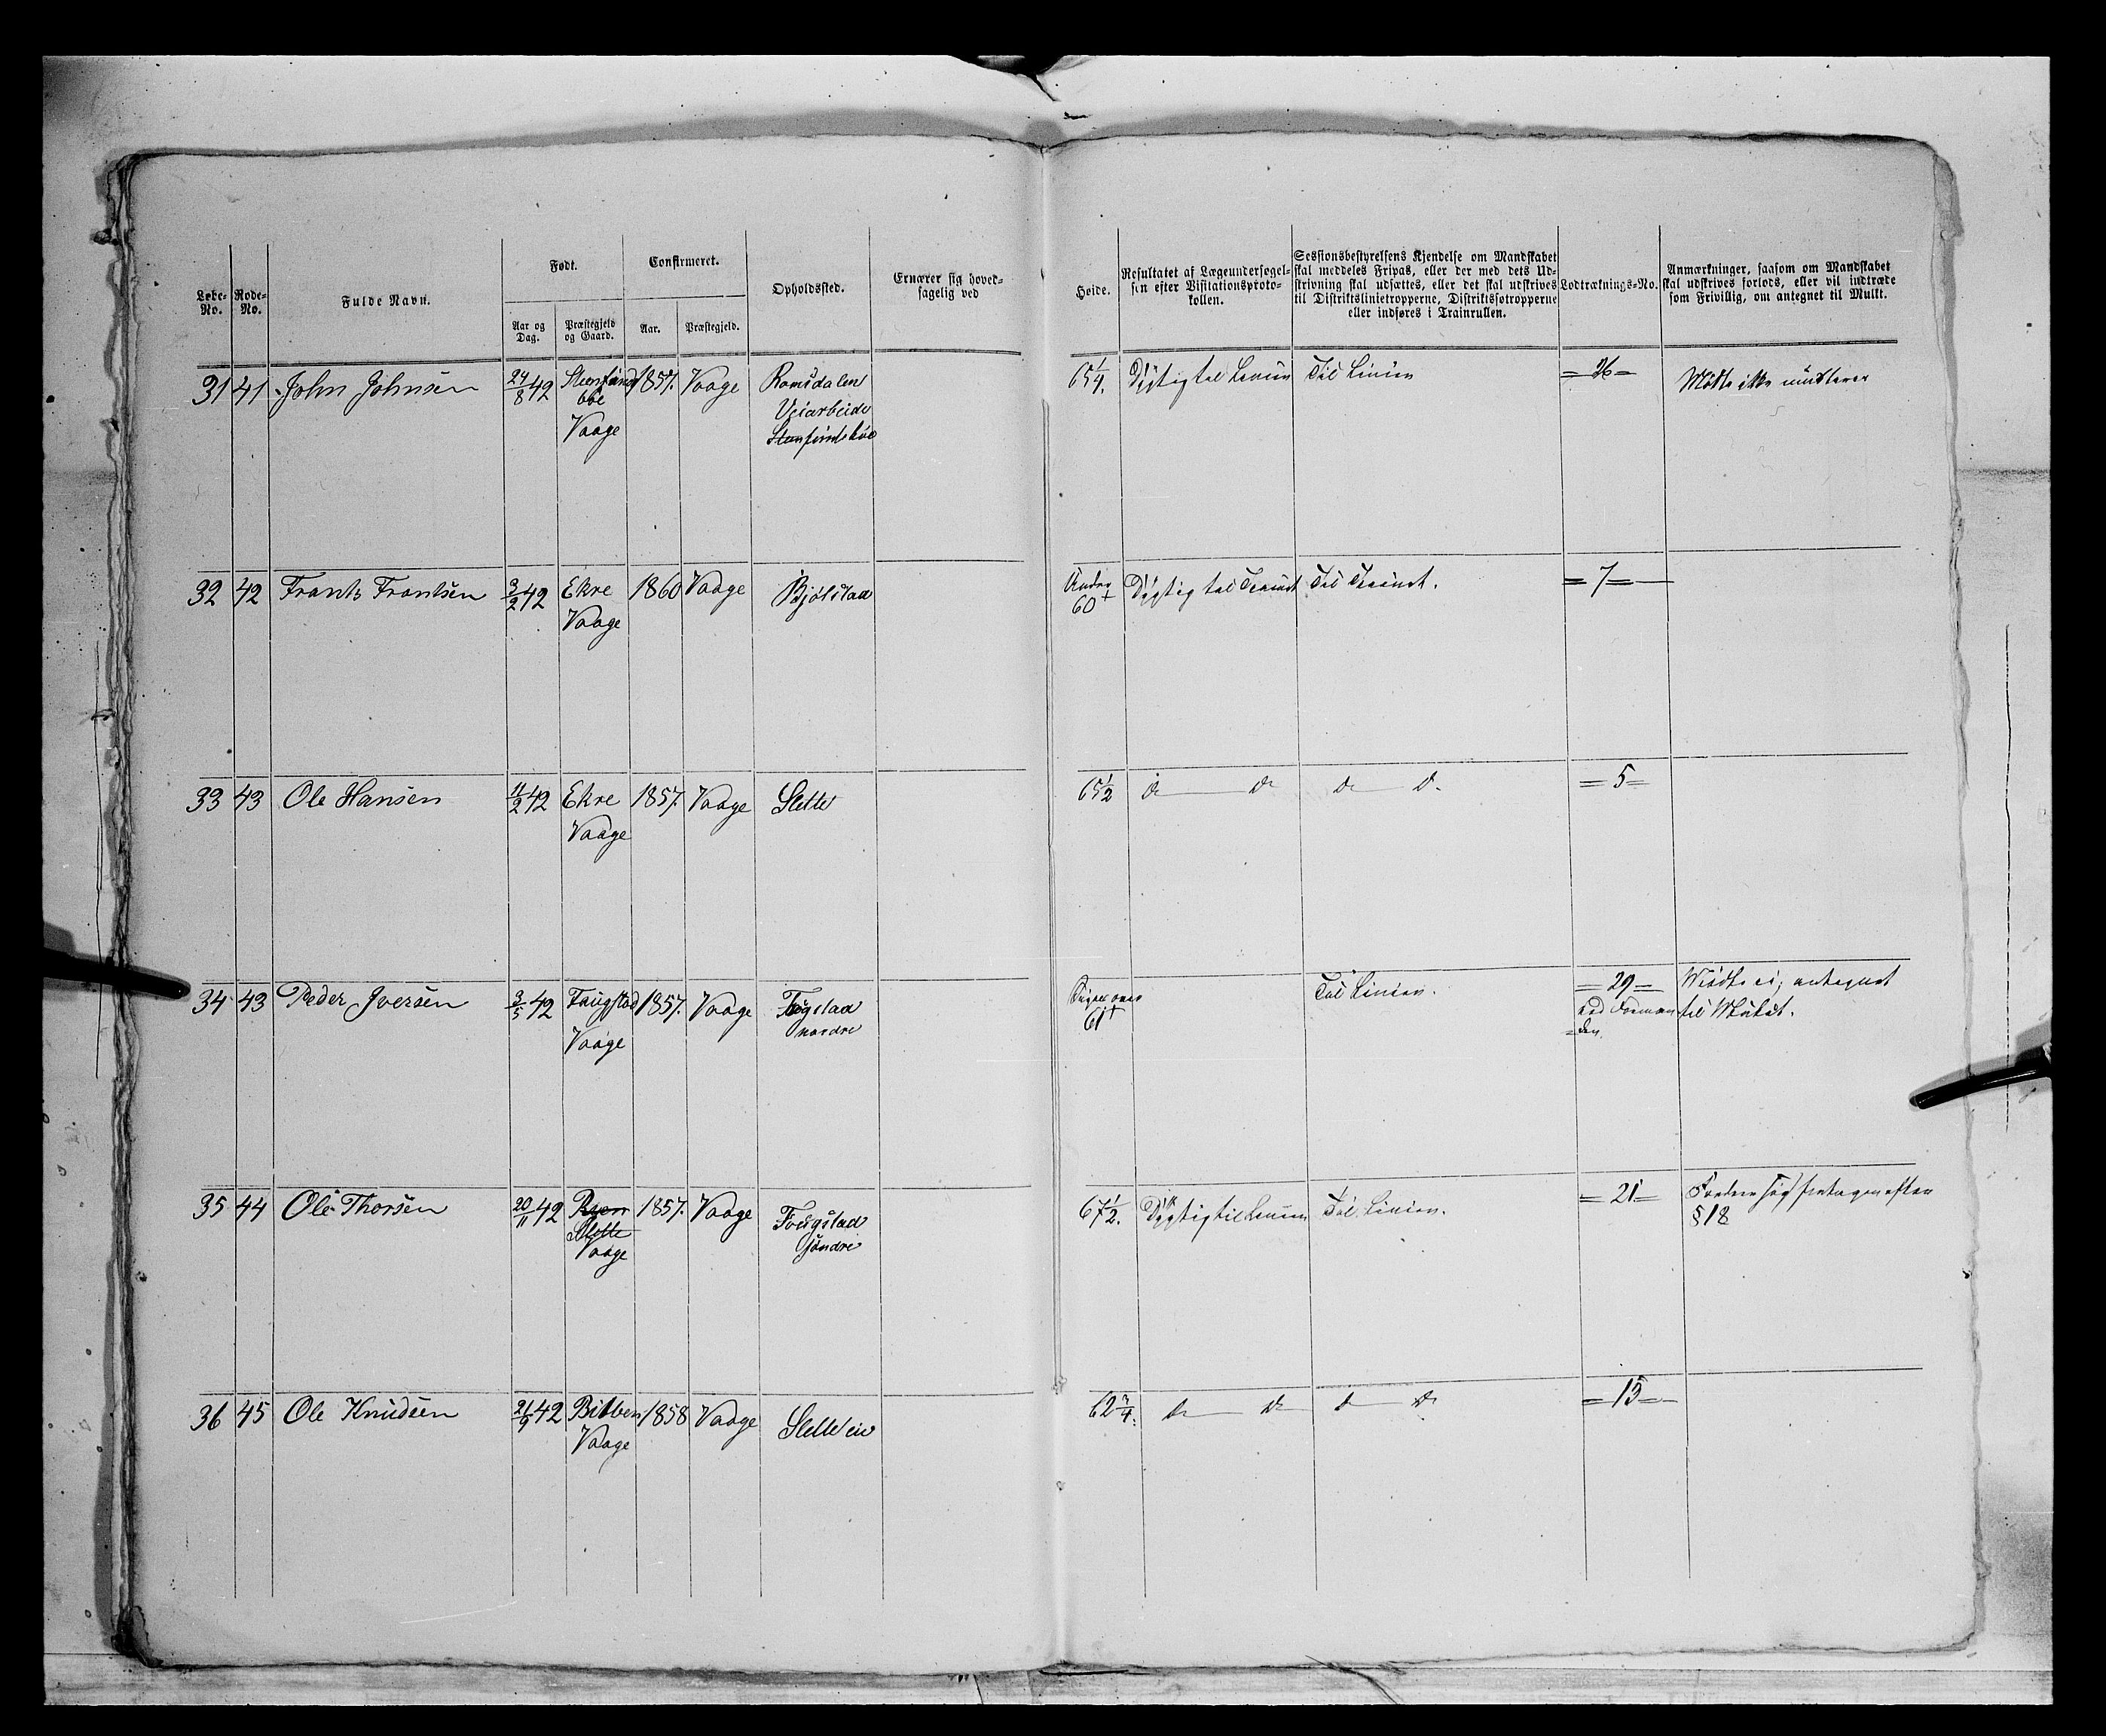 Løbe-No.
Rode-No.
Fulde Navn.
Født.
Aar og Dag.
Præstegjeld og Gaard.
Confirmeret.
Aar.
Præstegjeld.
Opholdssted.
Ernærer sig hoved-
sagelig ved
Høide.
Resultatet af Lægeundersøgel-
sen efter Visitationsproto-
kollen.
Sessionsbestyrelsens Kjendelse om Mandskabet
skal meddeles Fripas, eller der med dets Ud-
skrivning skal udsættes, eller det skal udskrives
til Distriktslinietropperne, Distriktsfotropperne
eller indføres i Trainrullen.
Lodtræknings-No.
Anmærkninger, saasom om Mandskabet
skal udskrives forlods, eller vil indtræde
som Frivillig, om antegnet til Mulkt.
31 41 John Johnsen 24/8 42 1857. Vaage Romsdalen 65 1/4. Dygtig til Linien Til Linien = 26 = Mødte ikke
Vaage Veiarbeide
32 42 Frants Frantsen 3/2 42 Ekre 1860 Vaage Bjølstad Under Dygtig til Trainet Til Trainet. = 7 =
Vaage 60 +
33 43 Ole Hansen 11/2 42 Ekre 1857. Vaage Slette 65 1/2 do do do do = 5 =
Vaage
34 43 Peder Iversen 3/5 42 Faugstad 1857. Vaage Fogstad over Til Linien. = 29 = Mødte ei, antegnet
Vaage nordre 61 + ved Formanden. til Mulkt.
35 44 Ole Thorsen 20/11 42 1857. Vaage Fougstad 67 1/2. Dygtig til Linien Til Linien. = 21 = efter
Slette søndre § 18
Vaage
36 45 Ole Knudsen 21/9 42 Bilben 1858 Vaage Slette eie 62 3/4. do do do do = 15 =
Vaage